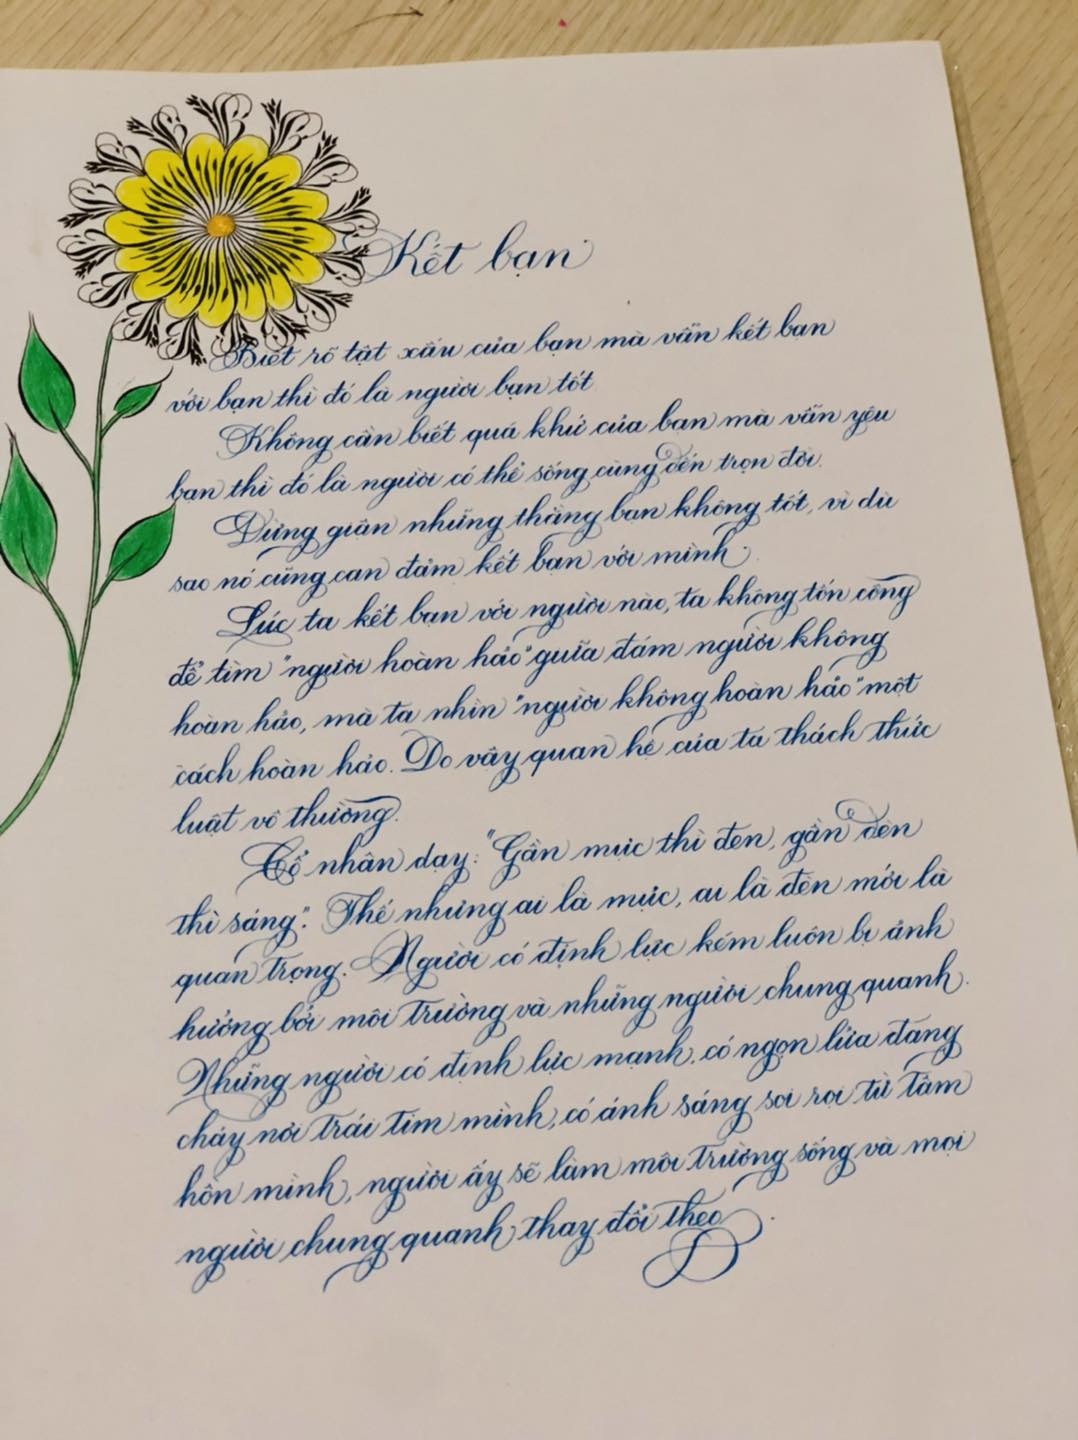 Kết bạn
Biết rõ tật xấu của bạn mà vẫn kết bạn
với bạn thì đó là người bạn tốt
Không cần biết quá khứ của bạn mà vẫn yêu
bạn thì đó là người có thể sống cùng đến trọn đời.
Đừng giận những thằng bạn không tốt, vì dù
sao nó cũng can đảm kết bạn với mình.
Lúc ta kết bạn với người nào, ta không tốn công
để tìm "người hoàn hảo" giữa đám người không
hoàn hảo, mà ta nhìn "người không hoàn hảo" một
cách hoàn hảo. Do vậy quan hệ của ta thách thức
luật vô thường.
Cổ nhân dạy: "Gần mực thì đen, gần đèn
thì sáng". Thế nhưng ai là mực, ai là đèn mới là
quan trọng. Người có định lực kém luôn bị ảnh
hưởng bởi môi trường và những người chung quanh.
Những người có định lực mạnh, có ngọn lửa đang
cháy nơi trái tim mình, có ánh sáng soi rọi từ tâm
hồn mình, người ấy sẽ làm môi trường sống và mọi
người chung quanh thay đổi theo.